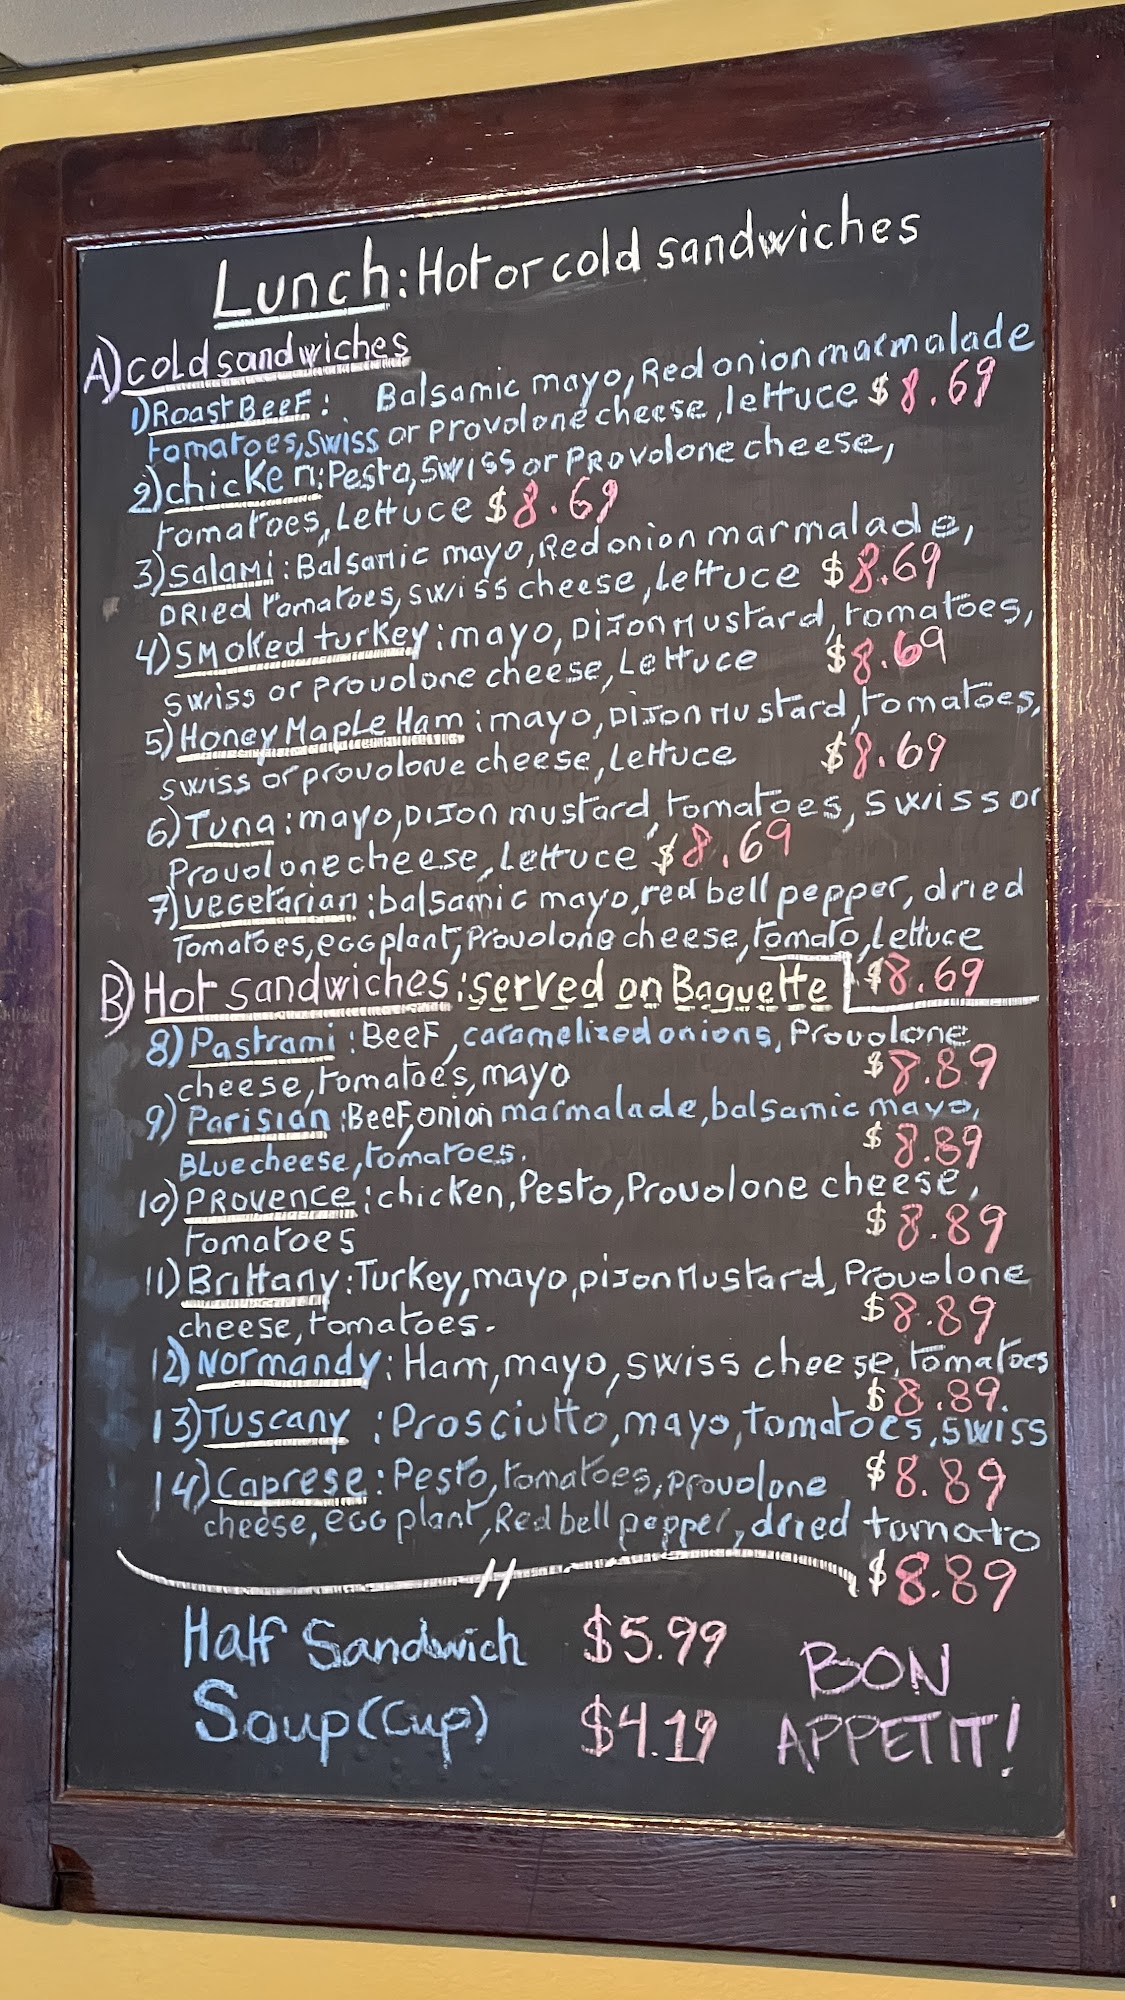 Lunch: Hot or cold sandwiches
A) cold sandwiches
1) Roast Beef: Balsamic mayo, Red onion marmalade
tomatoes, Swiss or Provolone cheese, lettuce $8.69
2) chicken: Pesto, Swiss or Provolone cheese,
tomatoes, Lettuce $8.69
3) Salami: Balsamic mayo, Red onion marmalade,
DRied tomatoes, Swiss cheese, Lettuce $8.69
4) Smoked turkey: mayo, Dijon Mustard, tomatoes,
Swiss or Provolone cheese, Lettuce $8.69
5) Honey Maple Ham: mayo, Dijon Mustard, tomatoes,
Swiss or provolone cheese, Lettuce $8.69
6) Tuna: mayo, Dijon mustard, tomatoes, Swiss or
Provolone cheese, Lettuce $8.69
7) Vegetarian: balsamic mayo, red bell pepper, dried
Tomatoes, eggplant, Provolone cheese, tomato, lettuce
$8.69
B) Hot sandwiches: served on Baguette
8) Pastrami: Beef, caramelized onions, Provolone
cheese, tomatoes, mayo $8.89
9) Parisian: Beef, onion marmalade, balsamic mayo,
Blue cheese, tomatoes. $8.89
10) PROVENCE: chicken, Pesto, Provolone cheese,
tomatoes $8.89
11) Brittany: Turkey, mayo, Dijon Mustard, Provolone
cheese, tomatoes. $8.89
12) Normandy: Ham, mayo, Swiss cheese, tomatoes
$8.89.
13) Tuscany: Prosciutto, mayo, tomatoes, swiss
$8.89
14) Caprese: Pesto, tomatoes, provolone
cheese, eggplant, Red bell pepper, dried tomato
$8.89
Half Sandwich $5.99
Soup (Cup) $4.19
BON
APPETIT!